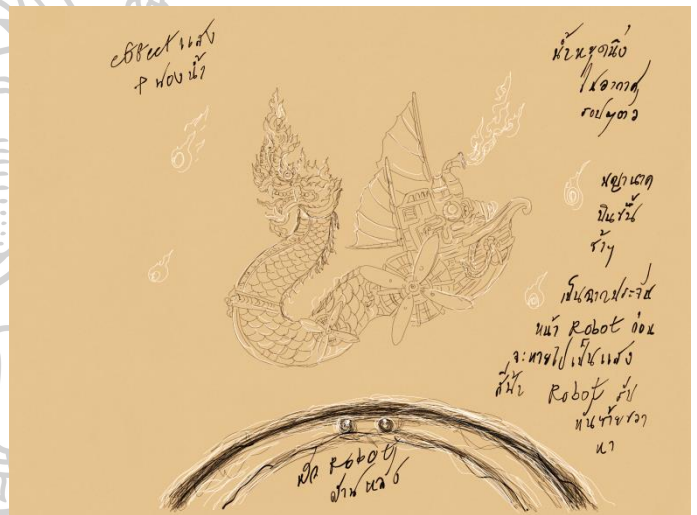 effect แสง
+ ฟองน้ำ
น้ำหยุดนิ่ง
ในอากาศ
รอบๆตัว
พญานาค
บินขึ้น
ช้าๆ
เป็นฉากประจัน
หน้า Robot ก่อน
จะหายไปเป็นแสง
สีฟ้า Robot รีบ
หันซ้ายขวา
หา
หัว Robot
ด้านหลัง